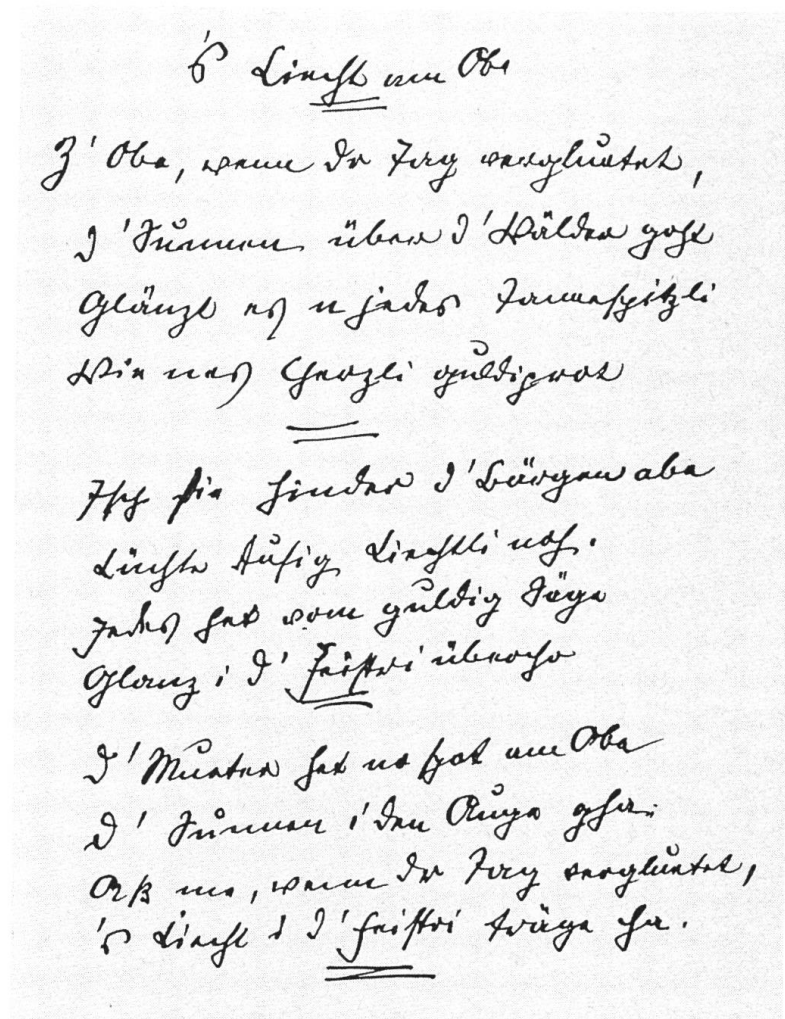 's Liecht am Obe
Z' Obe, wenn dr Tag vergluetet,
d' Sunnen über d' Wälder goht
Glänzt es n jedes Tannespitzli
Wie nes Cherzli guldigrot
Isch sie hinder d' Bärgen abe
Lüchte tusig Liechtli noh.
Jedes het vom guldig Säge
Glanz i d' Feistri übercho
D' Mueter het no spot am Obe
D' Sunnen i den Auge gha;
Aß me, wenn dr Tag vergluetet,
's Liecht i d' Feistri träge cha.